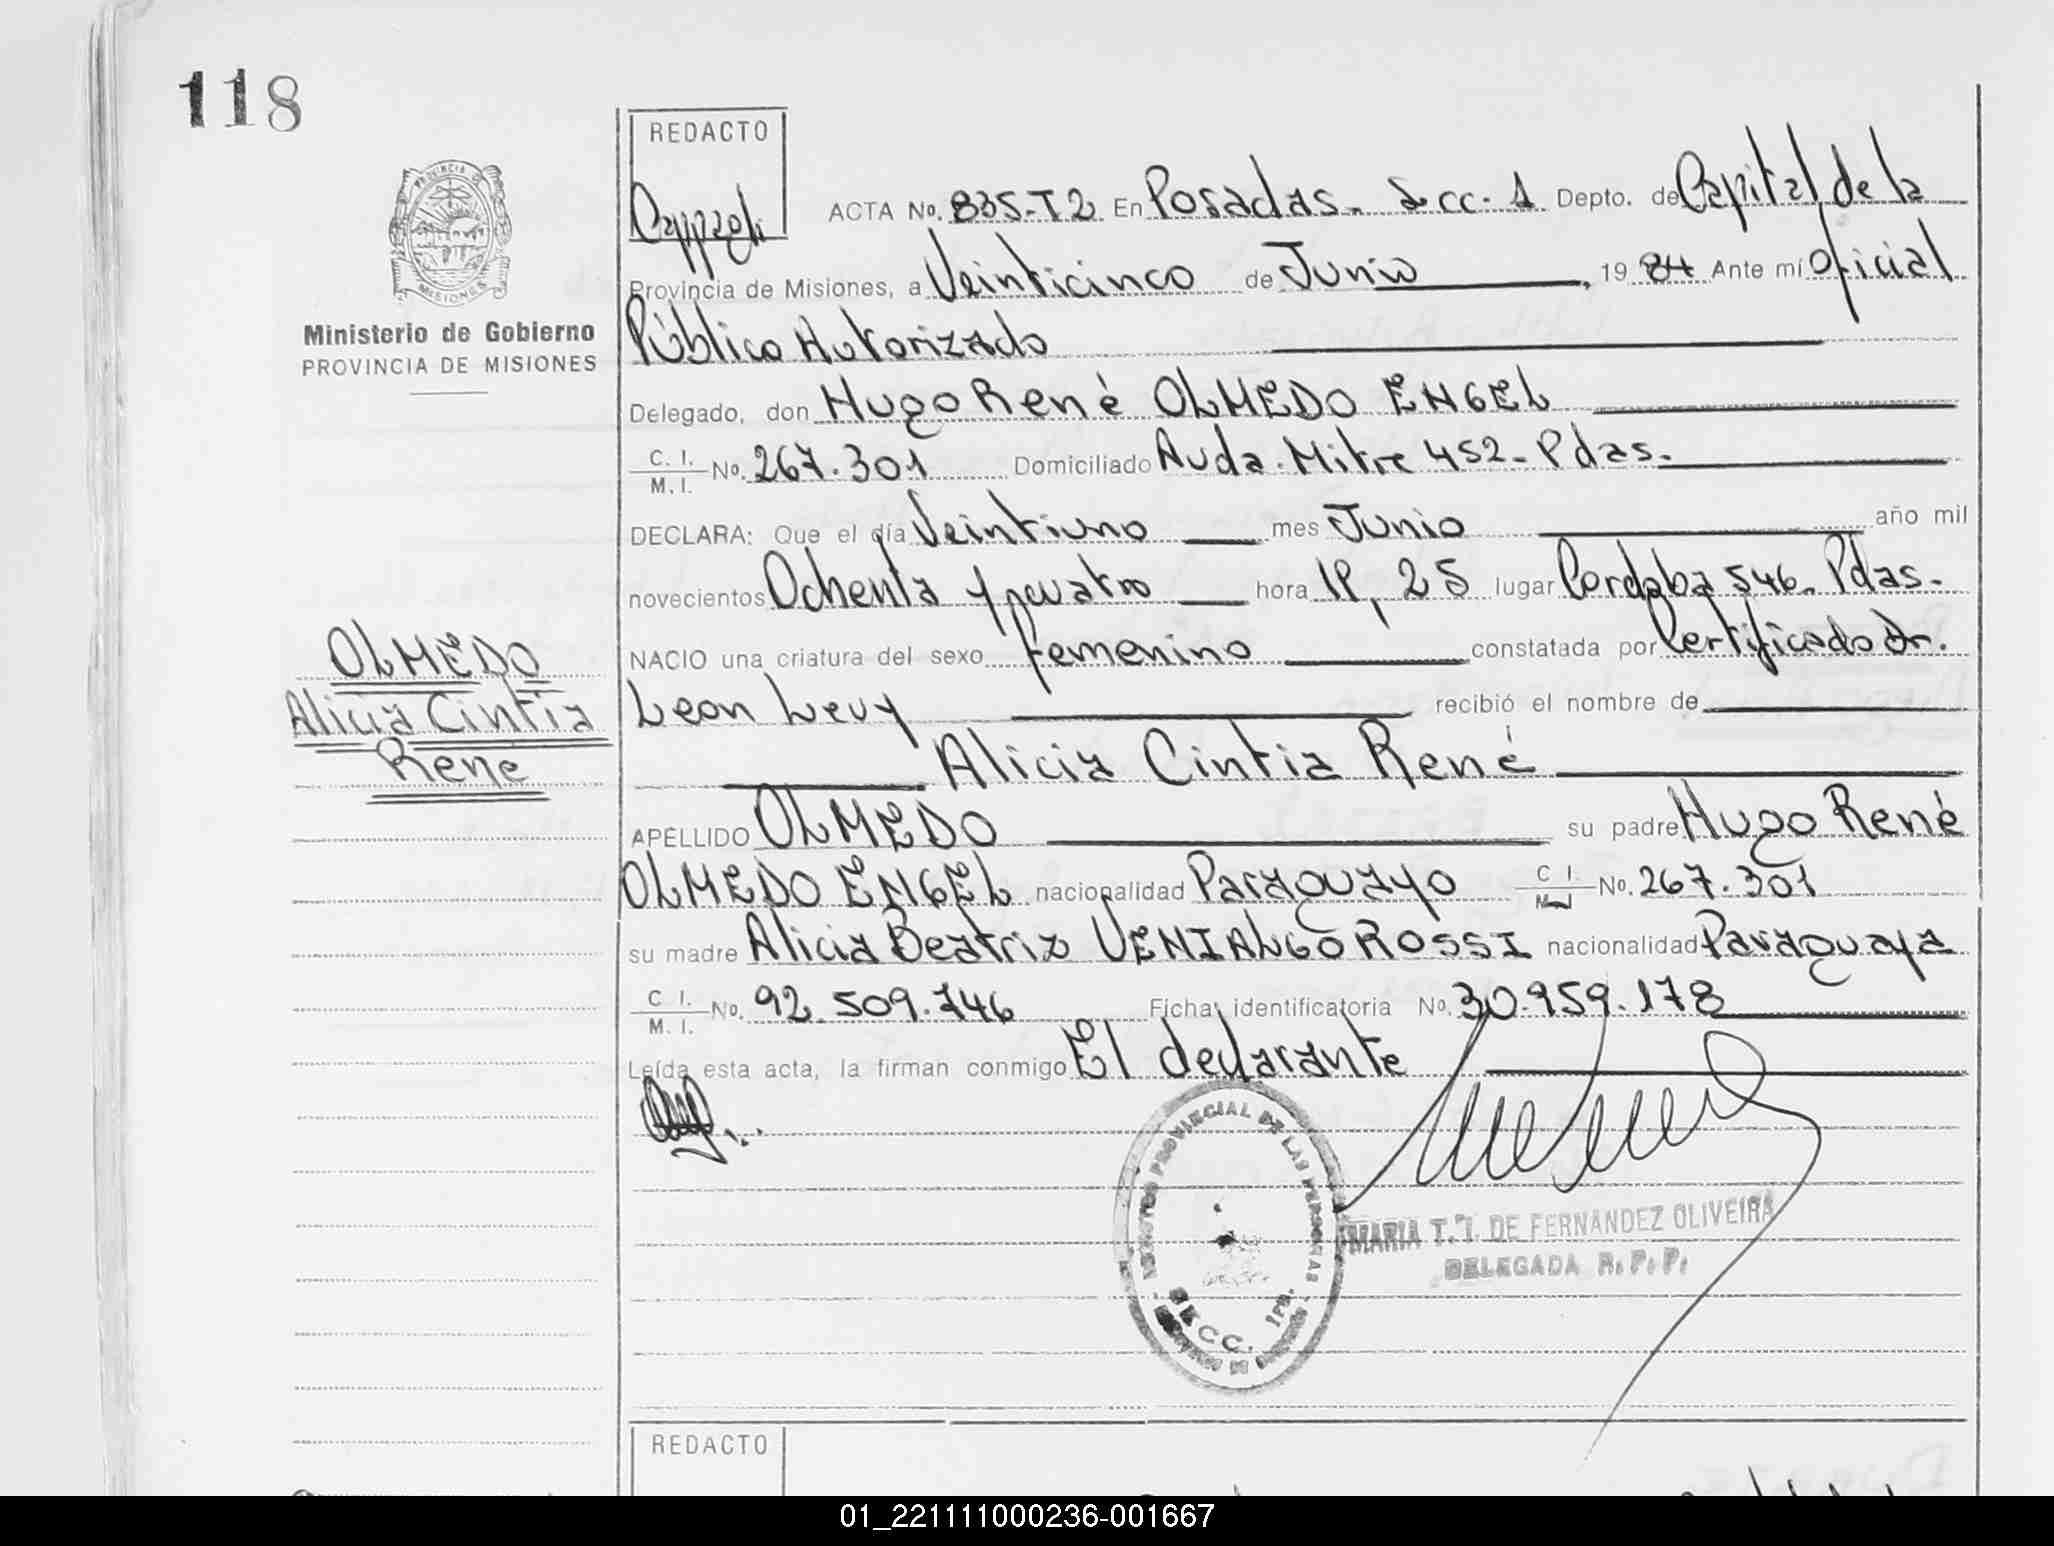 118
REDACTO
PROVINCIA DE
MISIONES
Ministerio de Gobierno
PROVINCIA DE MISIONES
ACTA No. 835-T2 En Posadas. Secc. 1 Depto. de Capital de la
Provincia de Misiones, a Veinticinco de Junio, 1984 Ante mí Oficial
Público Autorizado
Delegado, don Hugo René OLMEDO ENGEL
C. I.
M. I. No. 267.301 Domiciliado Avda. Mitre 452- Pdas.
DECLARA: Que el día Veintiuno mes Junio año mil
novecientos Ochenta y cuatro hora 18,25 lugar Cordoba 546. Pdas.
NACIO una criatura del sexo femenino constatada por Certificado Dr.
Leon Levy recibió el nombre de
Alicia Cintia René
OLMEDO
Alicia Cintia
Rene
APELLIDO OLMEDO su padre Hugo René
OLMEDO ENGEL nacionalidad Paraguayo C I. No. 267.301
su madre Alicia Beatriz VENIALGO ROSSI nacionalidad Paraguaya
C I.
M. I. No. 92.509.746 Ficha identificatoria No. 30.959.178
Leída esta acta, la firman conmigo El declarante
PROVINCIAL DE LAS PERSONAS
MARIA T. T. DE FERNANDEZ OLIVEIRA
DELEGADA R. P. P.
REDACTO
01_221111000236-001667